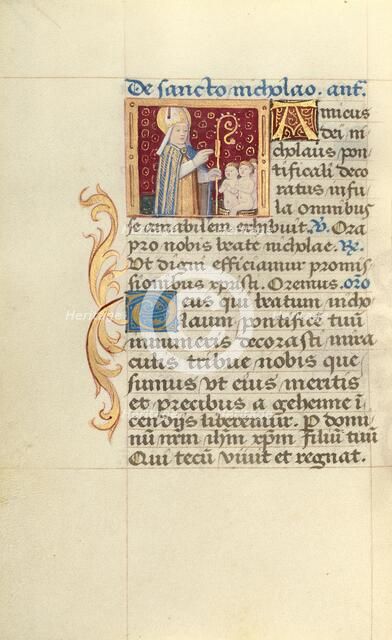 De sancto nicholao. ant.
Amicus
dei ni
cholaus pon
tificali deco
ratus infu
la omnibus
se amabilem exhibuit. V. Ora
pro nobis beate nicholae. R.
Ut digni efficiamur promis
sionibus xpristi. Oremus. oro
Deus qui beatum nicho
laum pontificē tuū
innumeris decorasti mira
culis tribue nobis que
sumus ut eius meritis
et precibus a gehenne ī
cendijs liberemur. P domi
nū nrm ihm xpm filiū tuū
Qui tecū vivit et regnat.